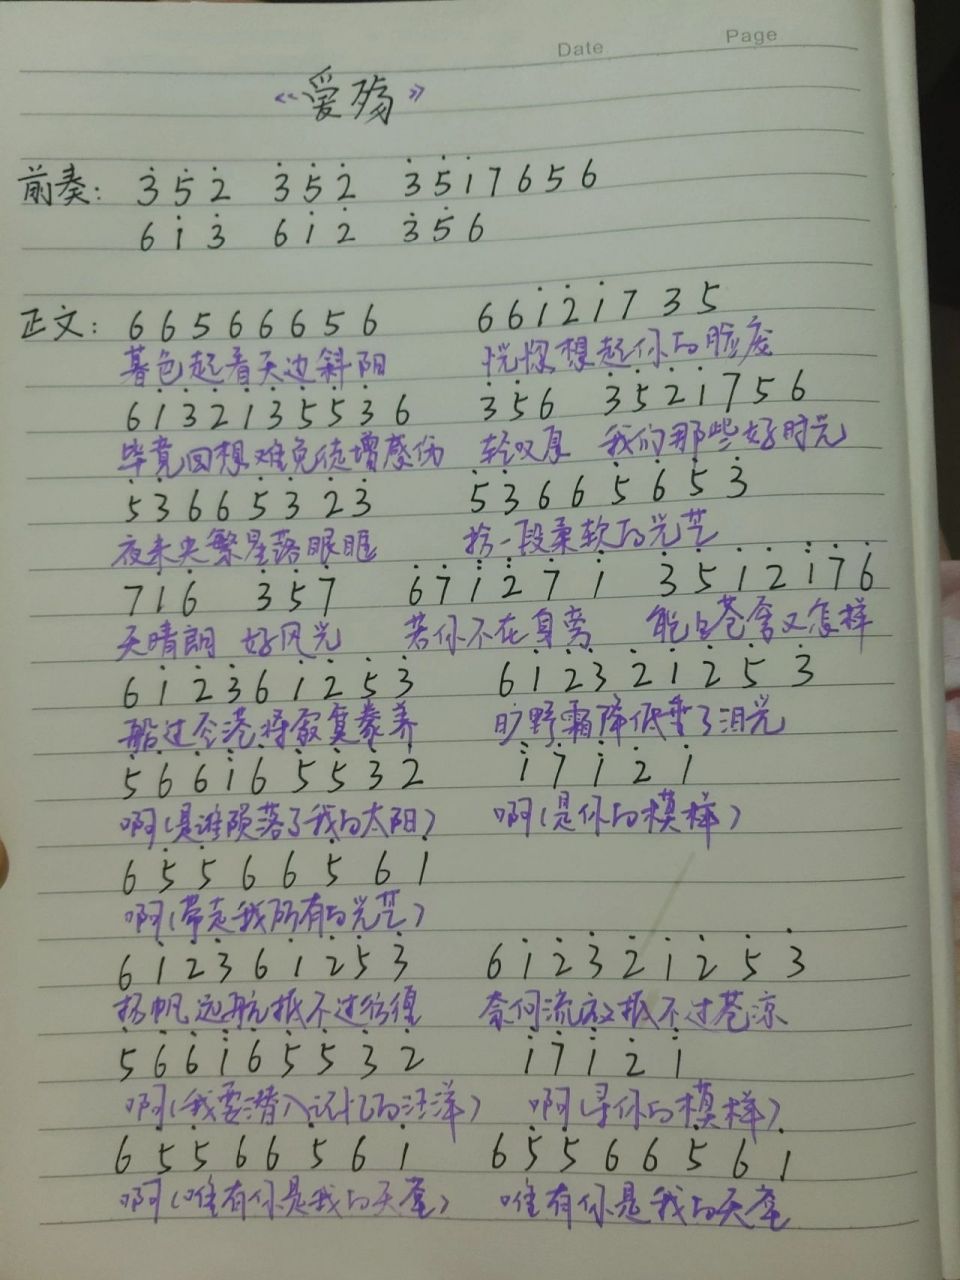 Date Page
《爱殇》
前奏: 3̇ 5̇ 2̇ 3̇ 5̇ 2̇ 3̇ 5̇ i 7 6 5 6
6 i 3̇ 6 i 2̇ 3̇ 5̇ 6
正文: 6 6 5 6 6 6 5 6 6 6 i 2̇ i 7 3 5
暮色起看天边斜阳 恍惚想起你的脸庞
6 i 3̇ 2̇ i 3̇ 5̇ 5̇ 3̇ 6 3̇ 5̇ 6 3̇ 5̇ 2̇ i 7 5 6
毕竟回想难免徒增感伤 轻叹厚 我们那些好时光
5̇ 3̇ 6 6 5̇ 3̇ 2̇ 3̇ 5̇ 3̇ 6 6 5̇ 6̇ 5̇ 3̇
夜未央繁星落眼眶 拾一段柔软的光芒
7 i 6̇ 3̇ 5̇ 7̇ 6̇ 7̇ i 2̇ 7̇ i 3̇ 5̇ i 2̇ i 7̇ 6̇
天晴朗 好风光 若你不在身旁 能上苍穹又怎样
6 i 2̇ 3̇ 6 i 2̇ 5̇ 3̇ 6 i 2̇ 3̇ 2̇ i 2̇ 5̇ 3̇
船过空港将寂寞豢养 旷野霜降低垂了泪光
5̇ 6̇ 6̇ i 6̇ 5̇ 5̇ 3̇ 2̇ i 7̇ i 2̇ i
啊(是谁陨落了我的太阳) 啊(是你的模样)
6 5̇ 5̇ 6 6 5̇ 6 i
啊(带走我所有的光芒)
6 i 2̇ 3̇ 6 i 2̇ 5̇ 3̇ 6 i 2̇ 3̇ 2̇ i 2̇ 5̇ 3̇
扬帆远航抵不过彷徨 奈何流放抵不过苍凉
5̇ 6̇ 6̇ i 6̇ 5̇ 5̇ 3̇ 2̇ i 7̇ i 2̇ i
啊(我要潜入记忆的汪洋) 啊(寻你的模样)
6 5̇ 5̇ 6 6 5̇ 6 i 6 5̇ 5̇ 6 6 5̇ 6 i
啊(唯有你是我的天堂) 唯有你是我的天堂